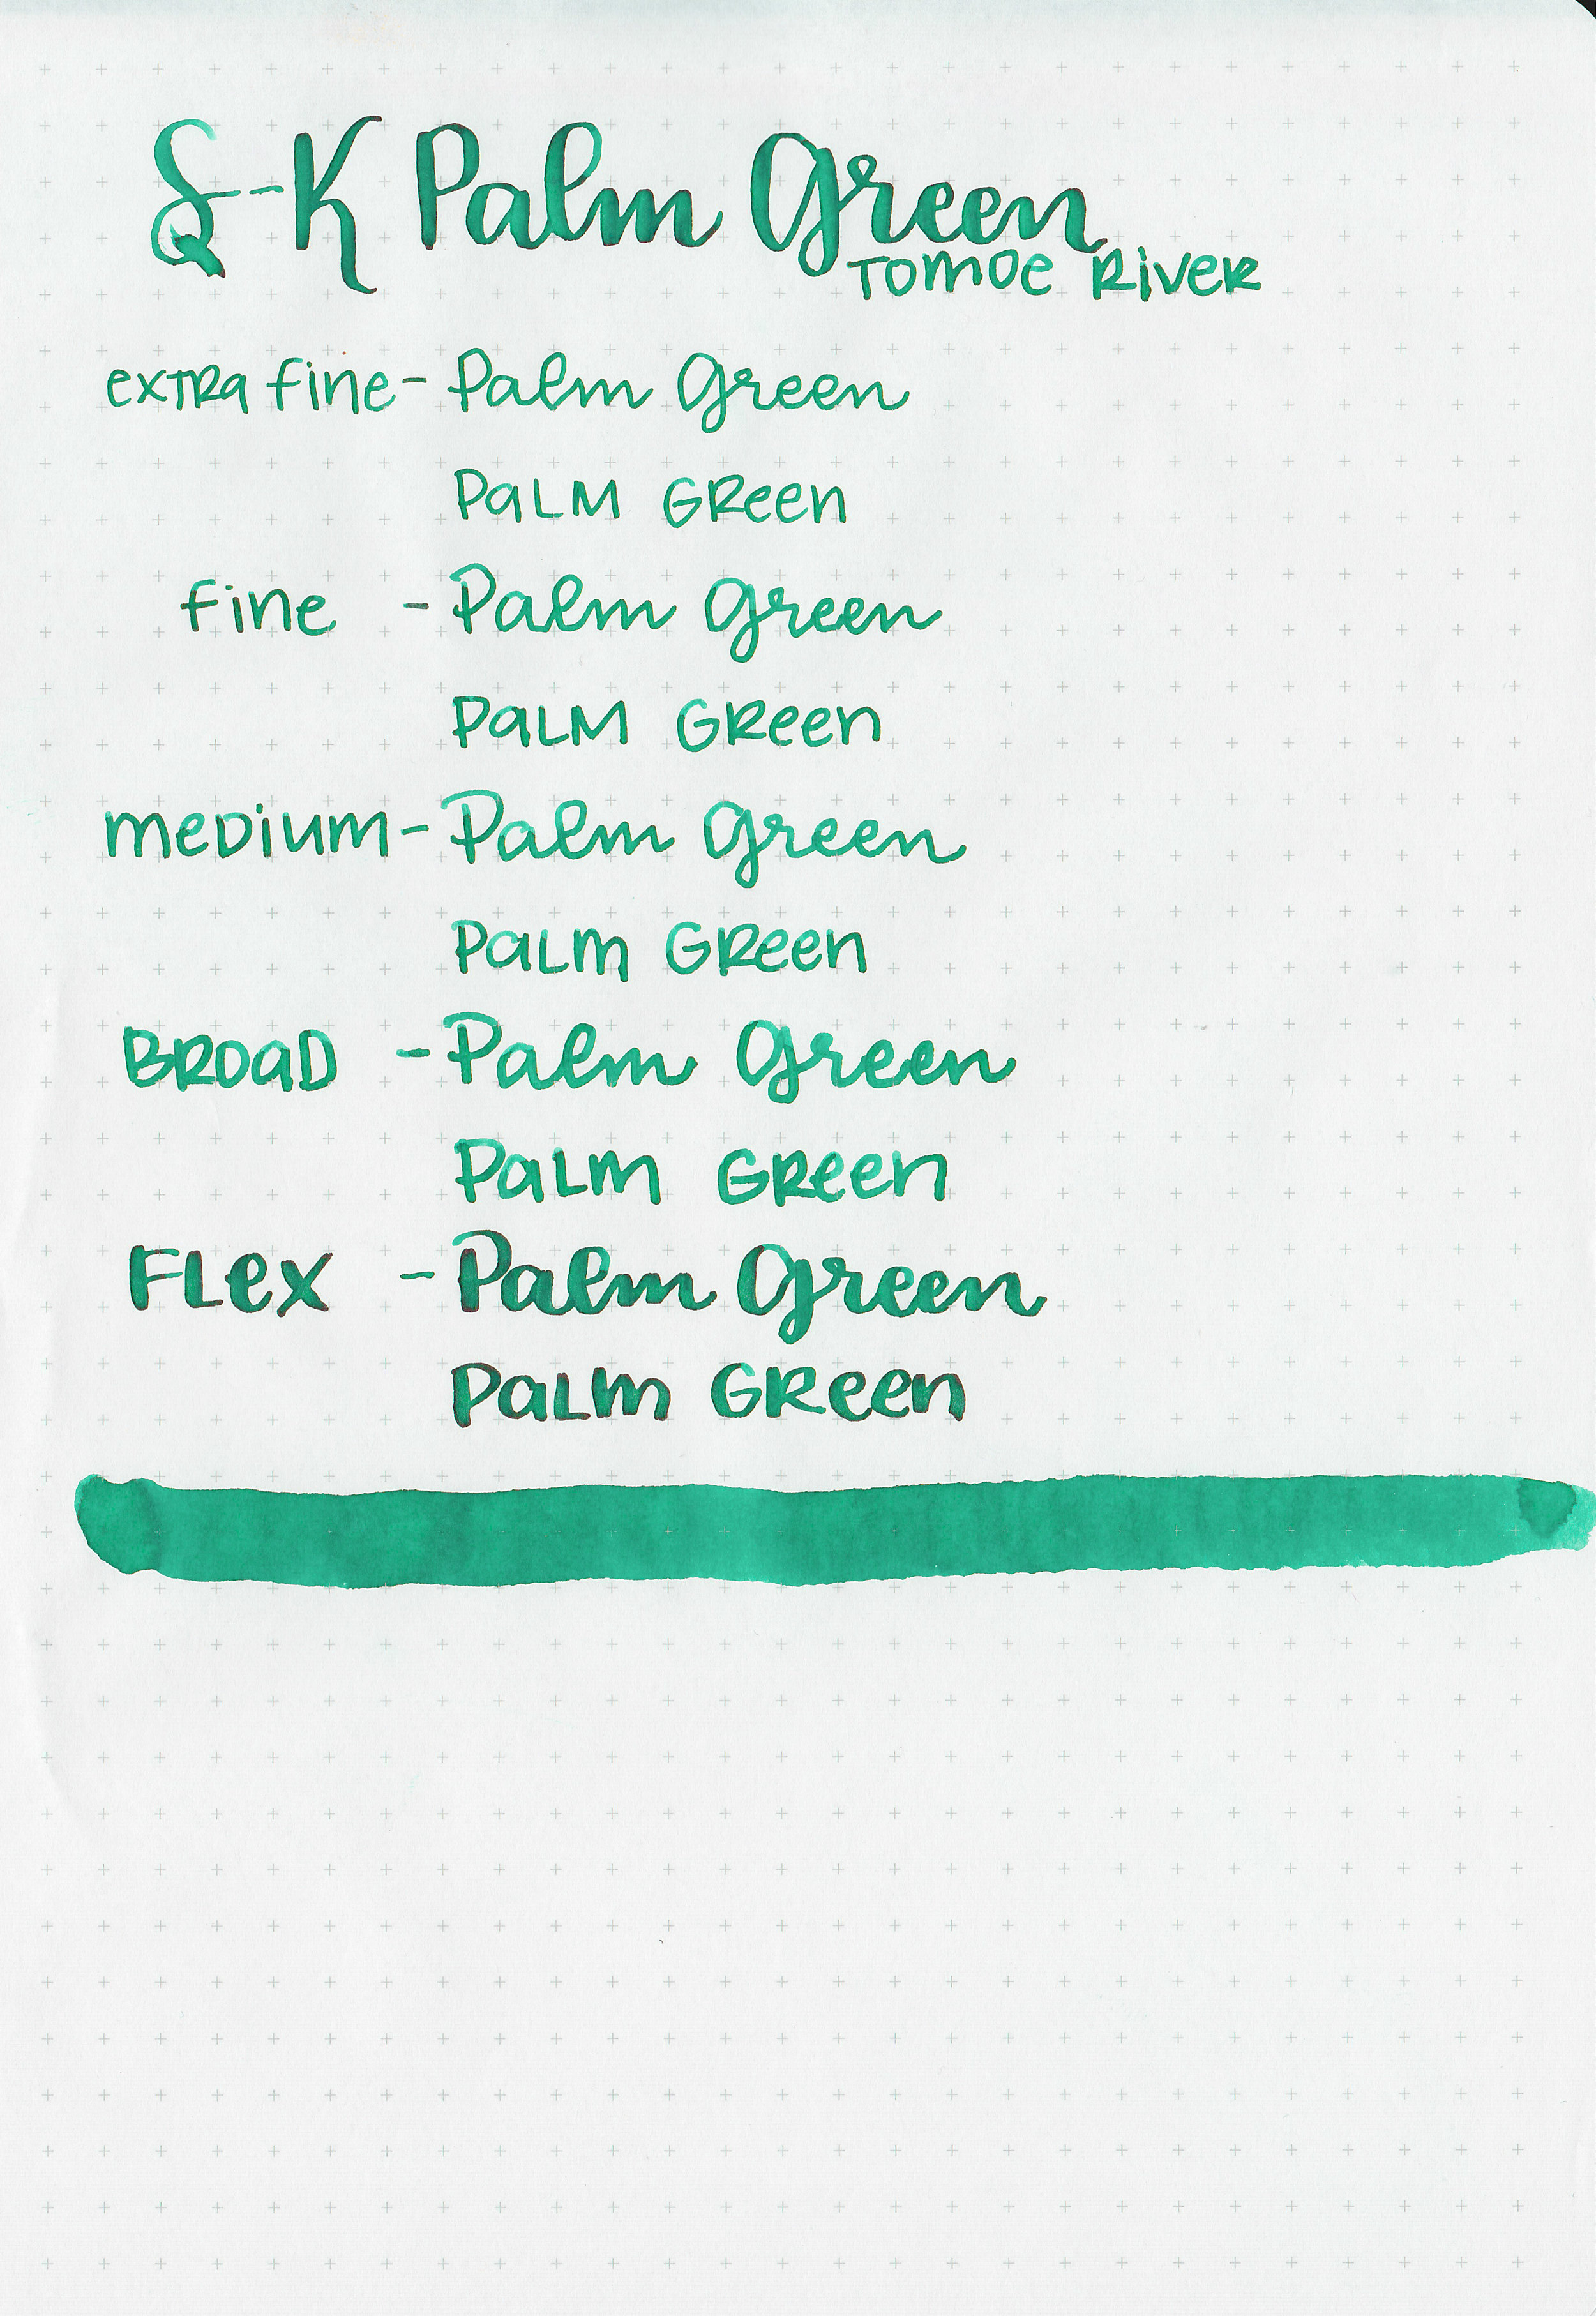 S-K Palm Green
Tomoe River
extra fine - Palm Green
PaLM GReen
fine - Palm Green
PaLM GReen
meDium - Palm Green
PaLm GReen
BROaD - Palm Green
PaLm GReen
FLex - Palm Green
PaLm GReen